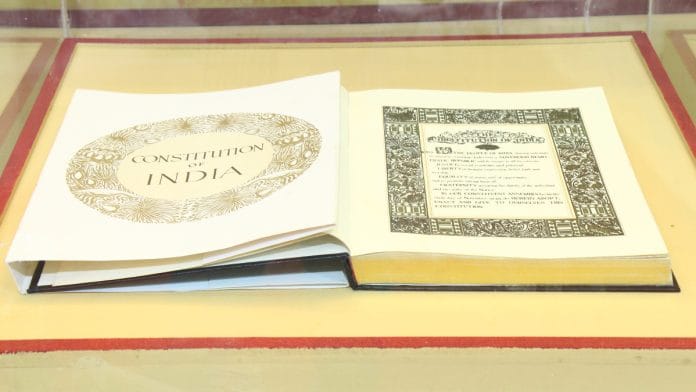 CONSTITUTION
OF
INDIA
THE
CONSTITUTION OF INDIA
WE, THE PEOPLE OF INDIA, having
SOVEREIGN DEMO-
CRATIC REPUBLIC and to secure to all its citizens:
JUSTICE, social, economic and political;
LIBERTY of thought, expression, belief, faith and
worship;
EQUALITY of status and of opportunity;
and to promote among them all
FRATERNITY assuring the dignity of the individual
and the unity of the Nation;
IN OUR CONSTITUENT ASSEMBLY this
day of November do HEREBY ADOPT,
ENACT AND GIVE TO OURSELVES THIS
CONSTITUTION.